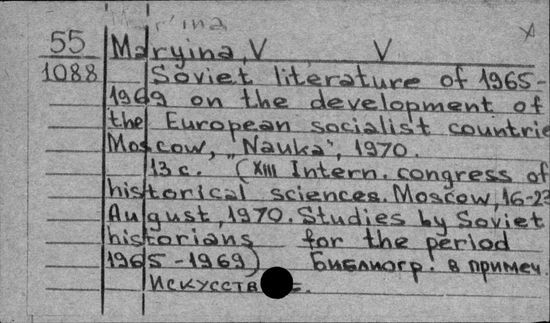 Maryina
55 Maryina, V V
1088 Soviet literature of 1965-
1969 on the development of
the European socialist countrie
Moscow, „Nauka”, 1970.
13 c. (XIII Intern. congress of
historical sciences. Moscow, 16-23
August, 1970. Studies by Soviet
historians for the period
1965-1969) Библиогр. в примеч.